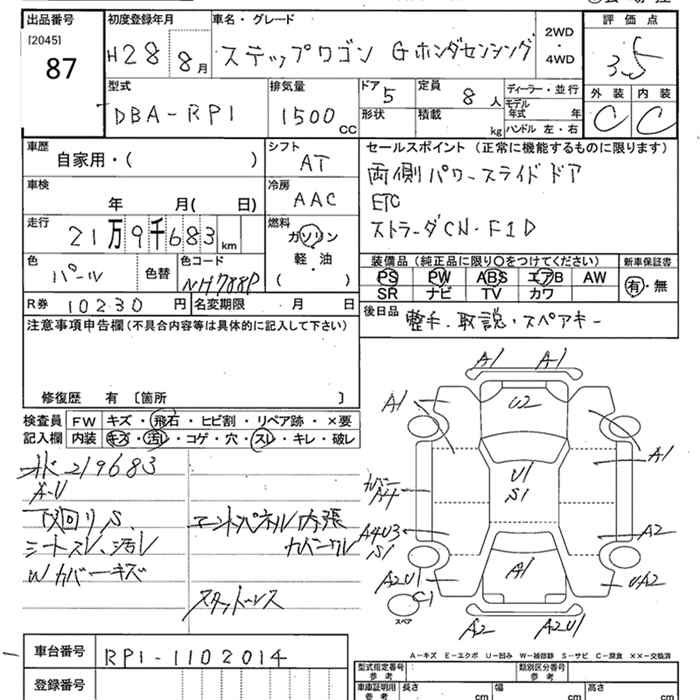 出品番号
[2045]
87
初度登録年月
H28 8月
車名・グレード
ステップワゴン Gホンダセンシング
2WD
・
4WD
評価点
3.5
外装 内装
C C
型式
DBA-RP1
排気量
1500 CC
ドア 5
形状
定員 8 人
積載 kg
ディーラー・並行
モデル年式 年
ハンドル 左・右
車歴
自家用・( )
シフト
AT
車検
年 月( 日)
冷房
AAC
走行
21万9千683 km
燃料
ガソリン
軽・油
( )
色
パール
色替
色コード
NH788P
R券 10230 円
名変期限 月 日
セールスポイント (正常に機能するものに限ります)
両側パワースライドドア
ETC
ストラーダCN・F1D
装備品 (純正品に限り○をつけてください)
PS PW ABS エアB AW
SR ナビ TV カワ
新車保証書
有・無
後日品
整手.取説・スペアキー
注意事項申告欄 (不具合内容等は具体的に記入して下さい)
修復歴 有 〔箇所 〕
検査員記入欄
FW キズ・飛石・ヒビ割・リペア跡・×要
内装 キズ・汚レ・コゲ・穴・スレ・キレ・破レ
219683
A-U
下回りS、
シートスレ、汚レ
Wカバーキズ
エンドパネル内張
カバーワレ
スタッドレス
A1 A1
A1
U2
A1
U1
S1
カバー
A4
A4U3
S1
A2
A2U1
A1
UA2
C1
スペア
A2 A2U1
A-キズ E-エクボ U-凹み W-補修跡 S-サビ C-腐食 ××-交換済
車台番号 RP1-1102014
登録番号
型式指定番号
参考
類別区分番号
参考
車庫証明用
参考
長さ cm
幅 cm
高さ cm